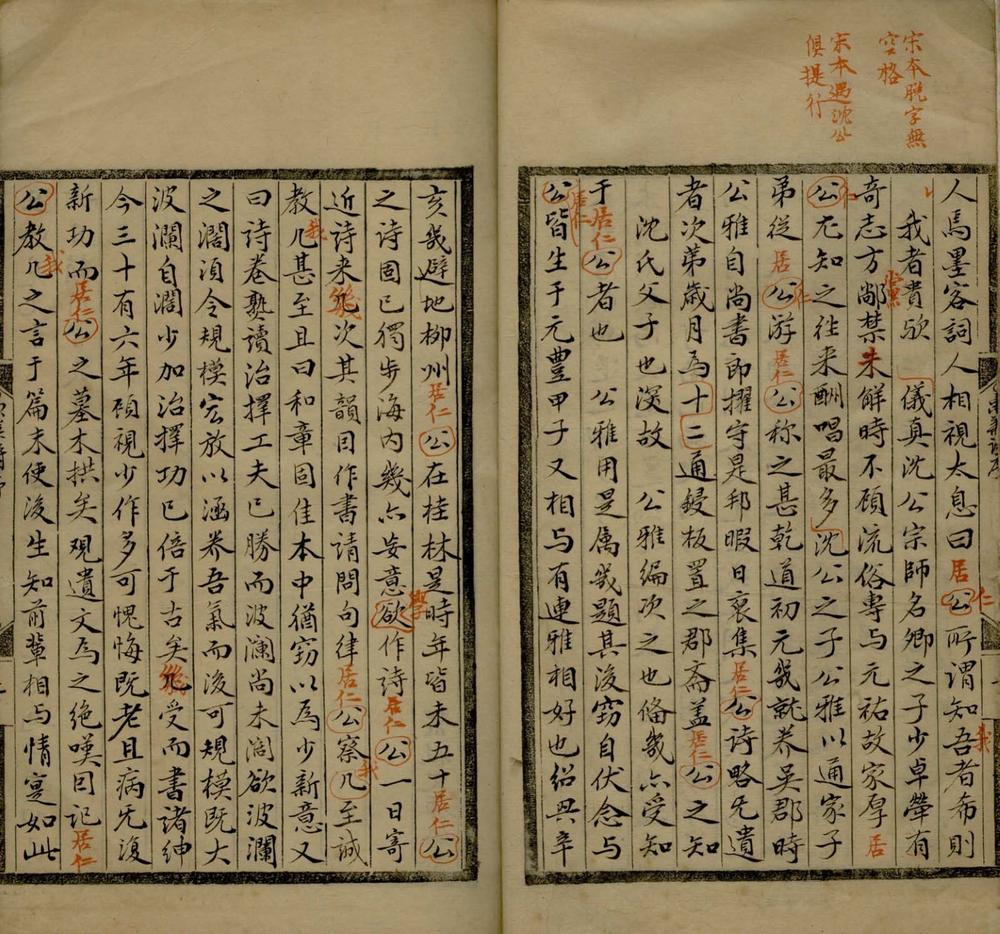 宋本脱字無
空格
宋本遇沈公
俱提行
人馬墨客詞人相視太息曰居仁公所謂知吾者希則
我者貴歟儀真沈公宗師名卿之子少卓犖有
奇志方鄗黨禁未解時不顧流俗專与元祐故家厚居
仁公尤知之往来酬唱最多沈公之子公雅以通家子
弟從居仁公游居仁公称之甚乾道初元幾就养吴郡時
公雅自尚書郎擢守是邦暇日裒集居仁公詩略无遺
者次第歲月為十二通鋟板置之郡斋盖居仁公之知
沈氏父子也深故 公雅編次之也俻幾亦受知
于居仁公者也 公雅用是属幾題其後窃自伏念与
居仁公皆生于元豊甲子又相与有連雅相好也绍興辛
亥幾避地柳州居仁公在桂林是時年皆未五十居仁公
之詩固已獨步海内幾亦妄意欲學作詩居仁公一日寄
近詩来幾次其韻因作書请問句律居仁公察几我至誠
教几我甚至且曰和章固佳本中猶窃以為少新意又
曰詩卷熟讀治擇工夫已勝而波瀾尚未阔欲波瀾
之阔須令規模宏放以涵养吾氣而後可規模既大
波瀾自阔少加治擇功已倍于古矣幾受而書諸绅
今三十有六年顧視少作多可愧悔既老且病无復
新功而居仁公之墓木拱矣観遺文為之绝嘆因記居仁
公教几我之言于篇末使後生知前輩相与情寔如此